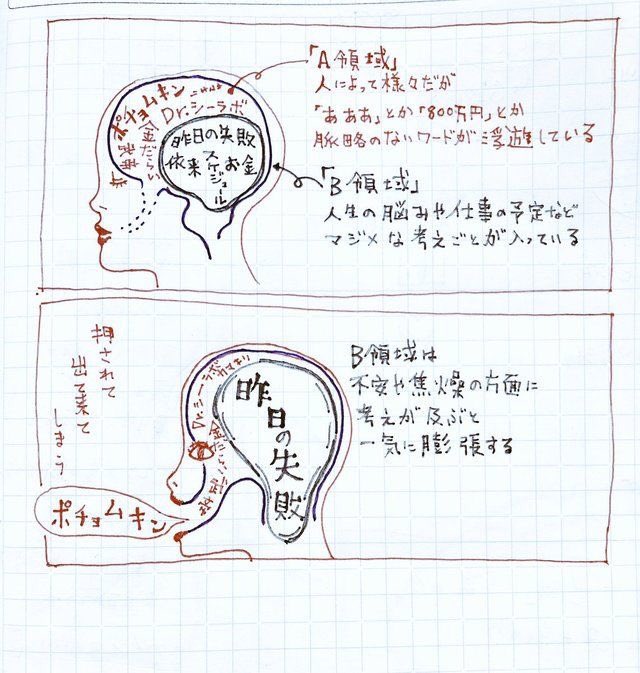 「A領域」
人によって様々だが
「あああ」とか「800万円」とか
脈略のないワードが浮遊している
ポチョムキン
Dr.シーラボ
金だらい
昨日の失敗
スケジュール
お金
「B領域」
人生の脳みや仕事の予定など
マジメな考えごとが入っている
押されて
出て来て
しまう
Dr.シーラボ
カマキリ
金だらい
昨日の失敗
ポチョムキン
B領域は
不安や焦燥の方面に
考えが及ぶと
一気に膨張する